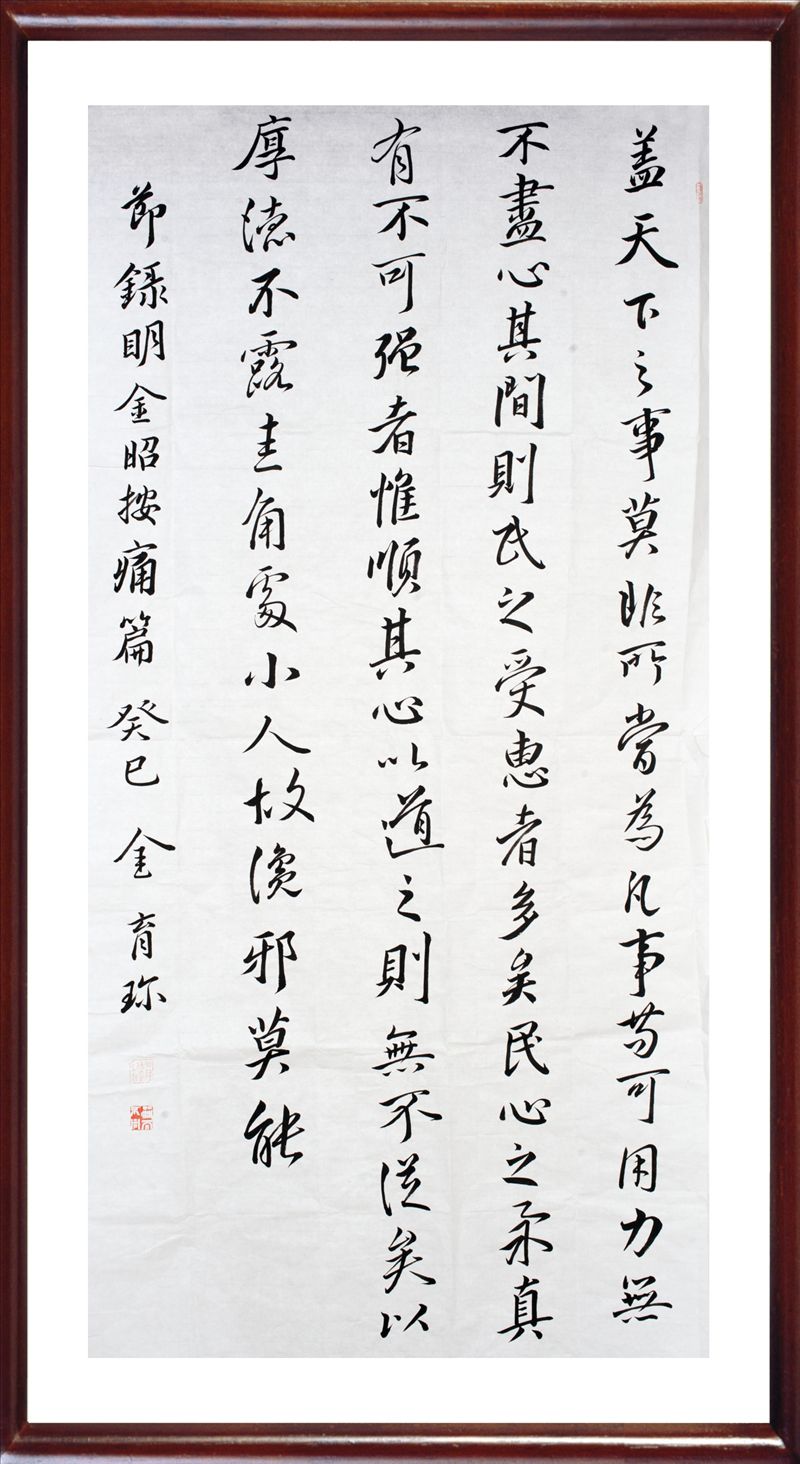 盖天下之事莫非所當為凡事苟可用力無
不盡心其間則民之受惠者多矣民心之柔真
有不可强者惟順其心以道之則無不從矣以
厚德不露圭角處小人故邪莫能
節錄明金昭按痛篇 癸巳 金育珎